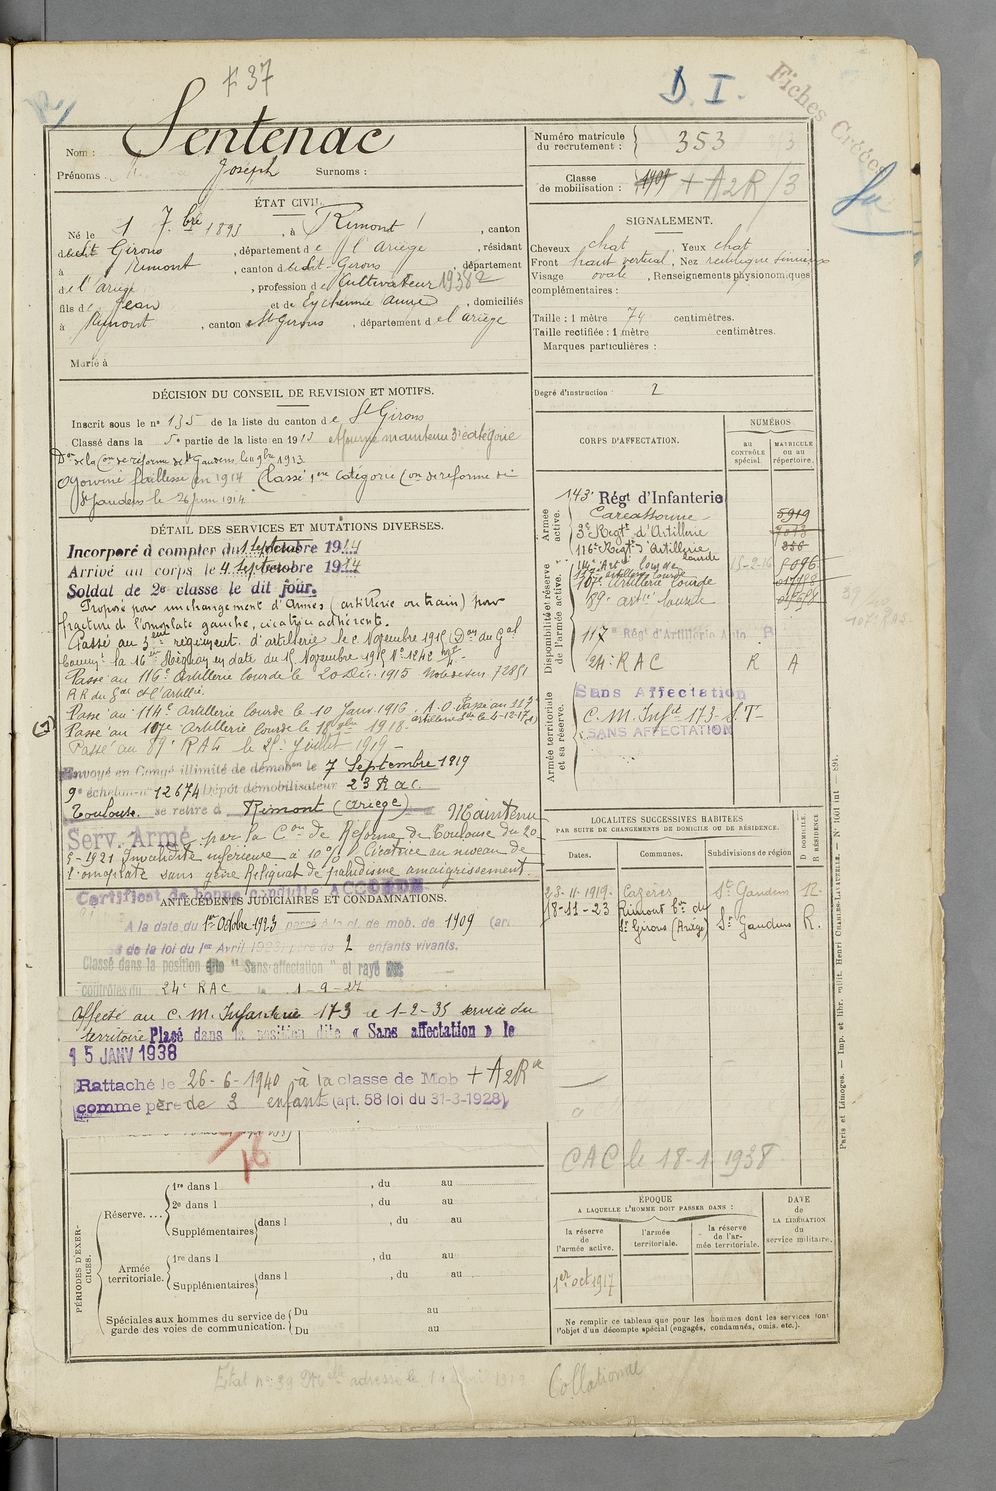 F 37
D. I.
Fiches Créées
Nom : Sentenac
Prénoms : Joseph Surnoms :
ÉTAT CIVIL.
Né le 1 7.bre 1893, à Rimont, canton
de St Girons, département de l'Ariège, résidant
à Rimont, canton de St-Girons, département
de l'Ariège, profession de Cultivateur 19382
fils de Jean et de Eychenne Anne, domiciliés
à Rimont, canton St Girons, département de l'Ariège
Marié à
Numéro matricule du recrutement : 353
Classe de mobilisation : 1909 + A2R /3
SIGNALEMENT.
Cheveux chat Yeux chat
Front haut vertical, Nez rectiligne sinueux
Visage ovale, Renseignements physionomiques
complémentaires :
Taille : 1 mètre 74 centimètres.
Taille rectifiée : 1 mètre centimètres.
Marques particulières :
Degré d'instruction : 2
DÉCISION DU CONSEIL DE REVISION ET MOTIFS.
Inscrit sous le no 135 de la liste du canton de St Girons
Classé dans la 5e partie de la liste en 1913
Don de la Con de réforme de St Gaudens le 9bre 1913
Ajourné faiblesse en 1914 Classé 1ere catégorie Con de réforme de
St Gaudens le 26 juin 1914
DÉTAIL DES SERVICES ET MUTATIONS DIVERSES.
Incorporé à compter du 1 Septembre 1914
Arrivé au corps le 4 Septembre 1914
Soldat de 2e classe le dit jour.
Proposé pour un changement d'Armes (artillerie ou train) pour
fracture de l'omoplate gauche, cicatrice adhérente.
Passé au 3eme régiment d'artillerie le Novembre 1915 (Don du Gal
Commt la 16eme Région en date du 15 Novembre 1915 No 1242
Passé au 116e Artillerie lourde le 20 Déc. 1915 72851
Passé au 114e Artillerie lourde le 10 Janv. 1916. A.O. Passé au 117e
artillerie Lde le 6-12-17
Passé au 107e Artillerie Lourde le 1918
Passé au 89e RAL le 25 Juillet 1919 -
Envoyé en Congé illimité de démobon le 7 Septembre 1919
9e échelon no 12674 Dépôt démobilisateur 23 R.a.c.
Toulouse. se retire à Rimont (Ariège) Maintenu
Serv. Armé par la Con de Réforme de Toulouse du 20-
5-1921 Invalidité inférieure à 10 % Cicatrice au niveau de
l'omoplate sans gêne Reliquat de paludisme amaigrissement.
Certificat de bonne conduite ACCORDÉ
ANTÉCÉDENTS JUDICIAIRES ET CONDAMNATIONS.
A la date du 1er Octobre 1923 passé à la cl. de mob. de 1909 (art
de la loi du 1er Avril 1923) père de 2 enfants vivants.
Classé dans la position dite "Sans affectation" et rayé des
contrôles du 24e RAC le 1-9-27
Affecté au C. M. Infanterie 173 le 1-2-35 service du
territoire Placé dans la position dite « Sans affectation » le
15 JANV 1938
Rattaché le 26-6-1940 à la classe de Mob + A2R
comme père de 3 enfants (art. 58 loi du 31-3-1928)
16
CORPS D'AFFECTATION.
NUMÉROS
au CONTRÔLE spécial.
MATRICULE ou au répertoire.
Armée active.
143e Régt d'Infanterie
Carcassonne 5919
3e Regt d'Artillerie 7013
116e Regt d'Artillerie lourde 356
Disponibilité et réserve de l'armée active.
114e Art. lourde 15-2-16 5096
117e artillerie lourde
107e Artillerie Lourde
89e artie lourde
117e Régt d'Artillerie Auto
24e R A C R A
Armée territoriale et sa réserve.
Sans Affectation
C. M. Infie 173 - S.T-
SANS AFFECTATION
LOCALITES SUCCESSIVES HABITEES
PAR SUITE DE CHANGEMENTS DE DOMICILE OU DE RÉSIDENCE.
Dates. Communes. Subdivisions de région D DOMICILE. R RÉSIDENCE
23-11-1919 Cazères St Gaudens R.
18-11-23 Rimont Con de St Girons (Ariège) St Gaudens R.
CAC le 18-1 1938
ÉPOQUE
A LAQUELLE L'HOMME DOIT PASSER DANS :
la réserve de l'armée active.
l'armée territoriale.
la réserve de l'armée territoriale.
DATE DE LA LIBÉRATION du service militaire.
1er oct 1917
Ne remplir ce tableau que pour les hommes dont les services font
l'objet d'un décompte spécial (engagés, condamnés, omis. etc.).
PÉRIODES D'EXERCICES.
Réserve....
1re dans l , du au
2e dans l , du au
Supplémentaires dans l , du au
Armée territoriale.
1re dans l , du au
Supplémentaires dans l , du au
Spéciales aux hommes du service de garde des voies de communication.
Du au
Du au
Collationné
Paris et Limoges. — Imp. et libr. milit. Henri CHARLES-LAVAUZELLE. — No 1601 int — 891.